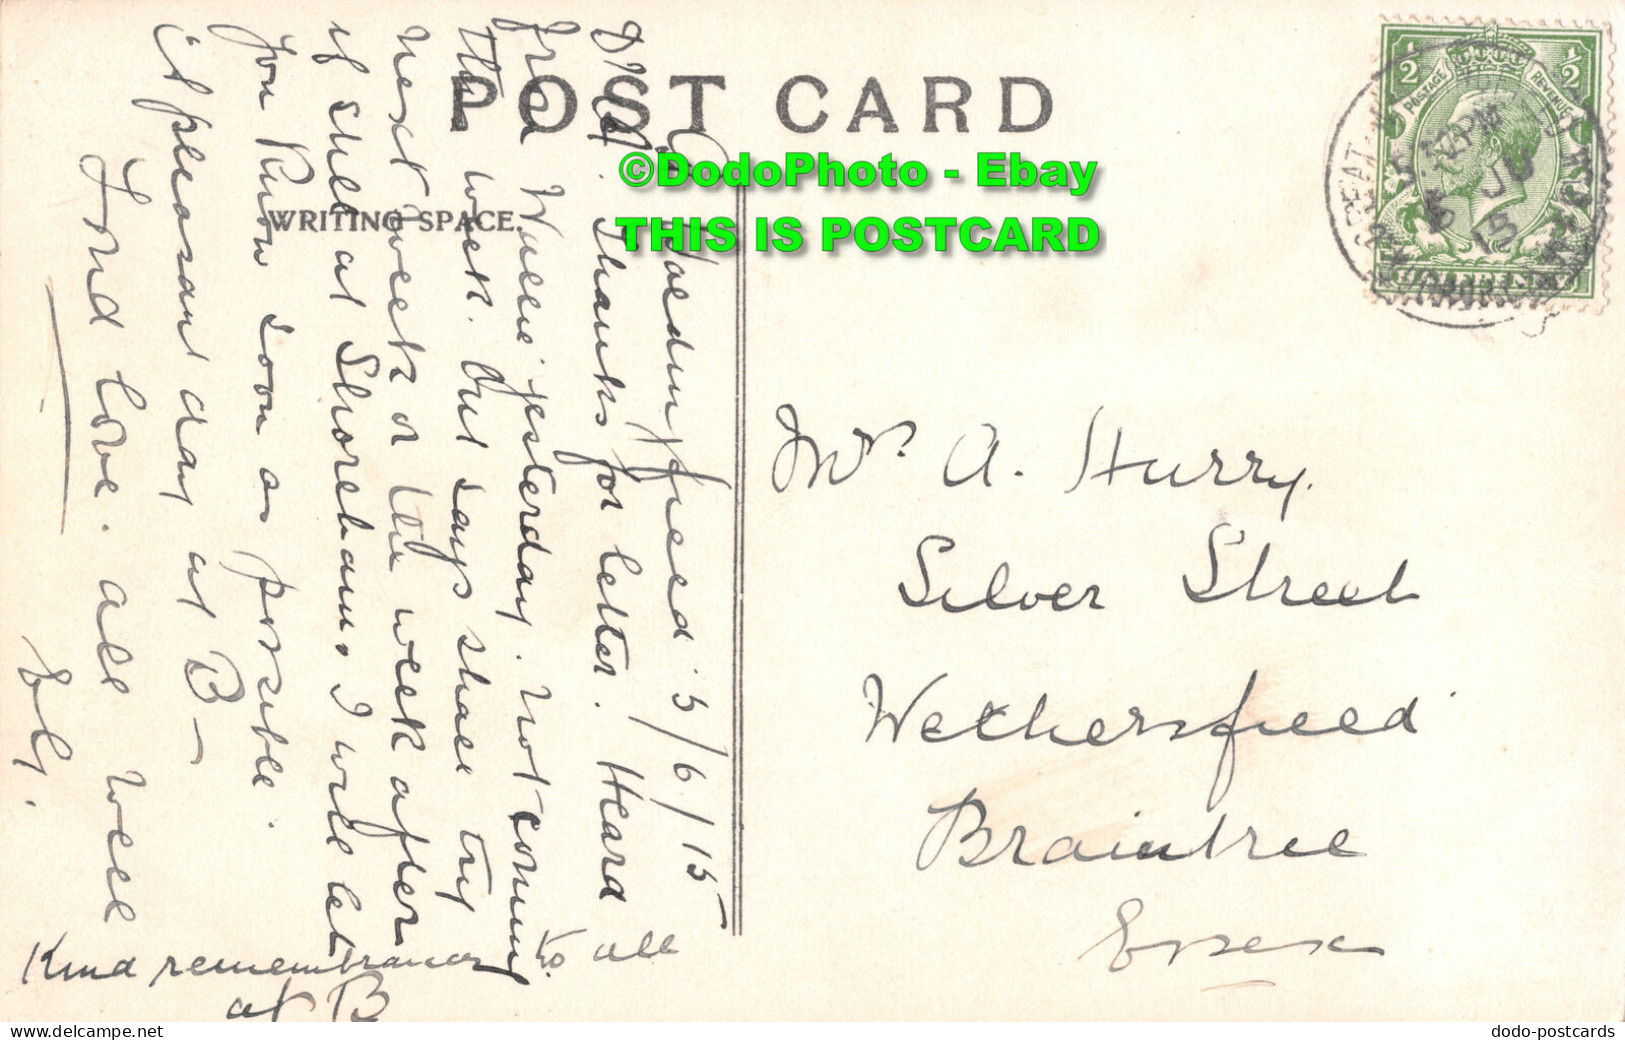 POST CARD
WRITING SPACE.
©DodoPhoto - Ebay
THIS IS POSTCARD
1/2 1/2
POSTAGE REVENUE
5 JU
15
5/6/15
Thanks for letter. Heard
from Willie yesterday. Not coming
this week. But says shall try
next week or the week after
if still at Shoreham. I will let
you know soon as possible.
a pleasant day at B—
Fond love. all well
Kind remembrances to all
at B
Mrs. A. Hurry.
Silver Street
Wethersfield
Braintree
Essex
delcampe.net
dodo-postcards